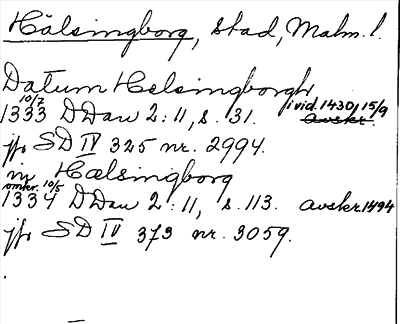 Hälsingborg, stad, Malm. l.
Datum Helsingborgh
10/7 i vid. 1430 15/9
1333 DDan 2:11, s. 31. avskr.
jfr SD IV 325 nr. 2994.
in Hælsingborg
omkr. 10/5
1334 DDan 2:11, s. 113. avskr 1494
jfr SD IV 373 nr. 3059.